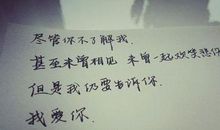 尽管你不了解我.
甚至未曾相见 未曾一起欢笑悲伤
但是我仍要告诉你.
我爱你.